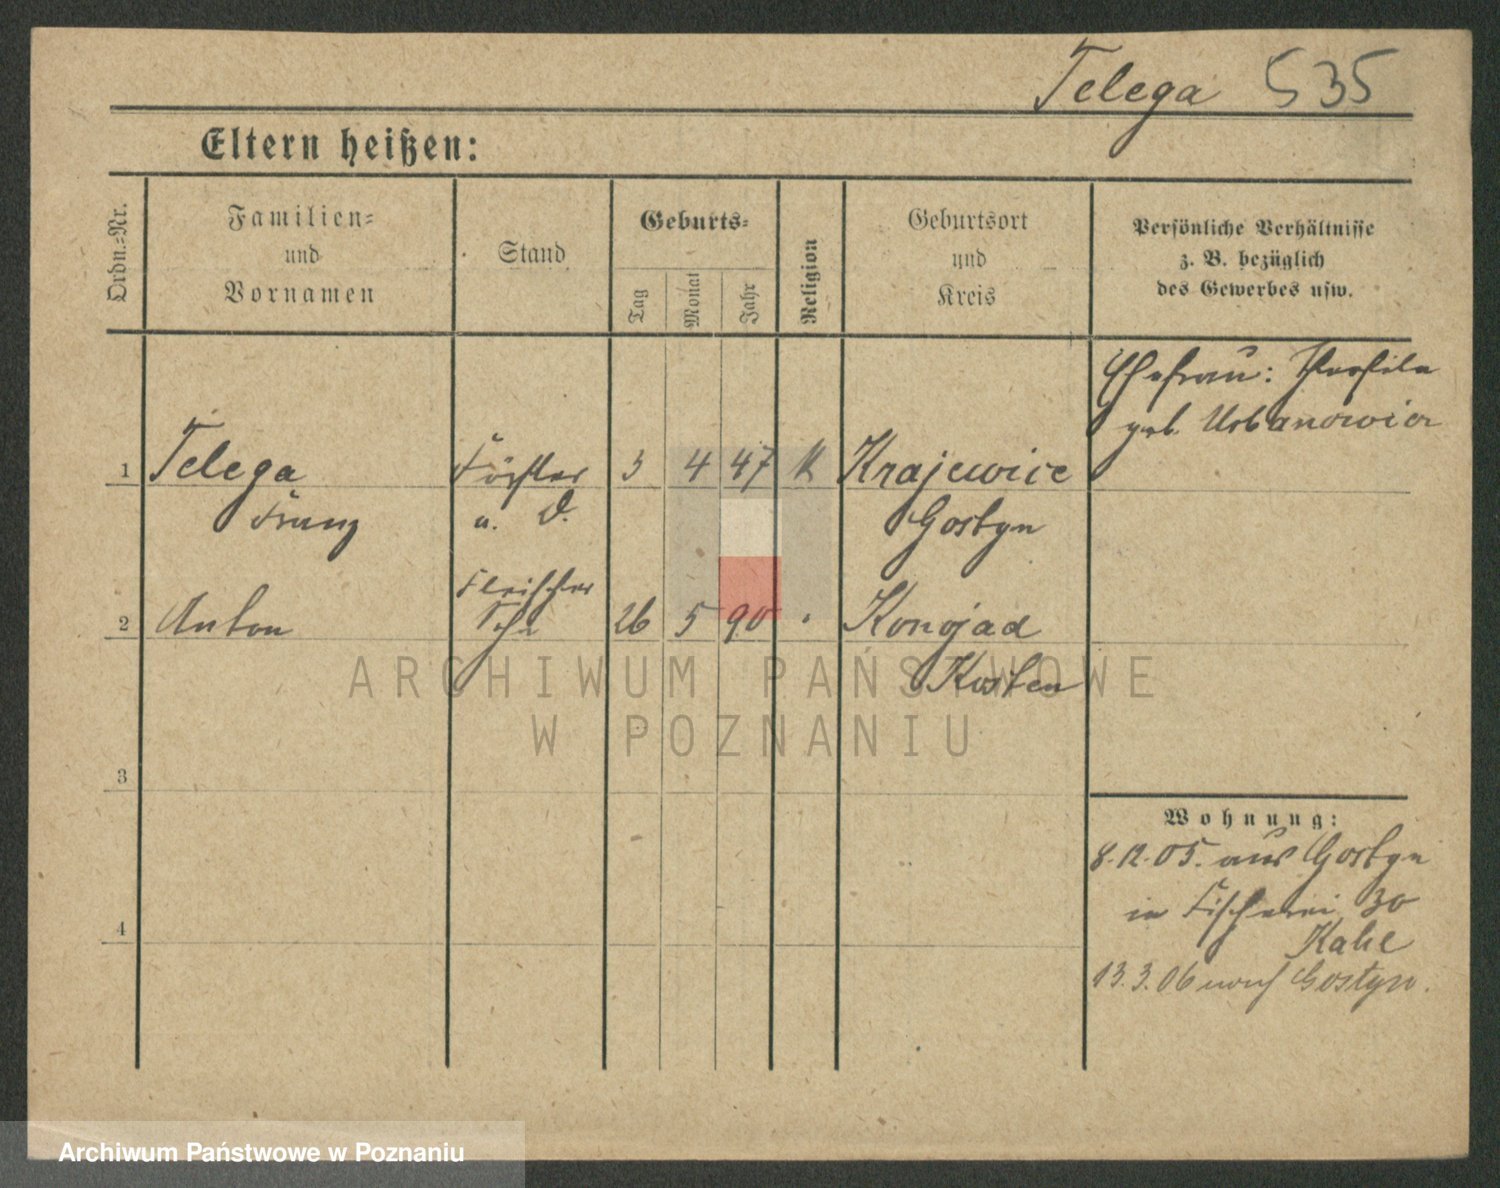 Telega 535
Eltern heißen:
Ordn.=Nr.
Familien=
und
Vornamen
Stand
Geburts=
Tag
Monat
Jahr
Religion
Geburtsort
und
Kreis
Persönliche Verhältnisse
z. B. bezüglich
des Gewerbes usw.
Ehefrau:
geb. Urbanowicz
1 Telega Förster 3 4 47 K Krajewice
Franz u. D. Gostyn
Fleischer
2 Anton 26 5 90 Konojad
Kosten
3
4
Wohnung:
8.12.05. aus Gostyn
in Fischerei 30
13.3.06 nach Gostyn.
ARCHIWUM PAŃSTWOWE
W POZNANIU
Archiwum Państwowe w Poznaniu